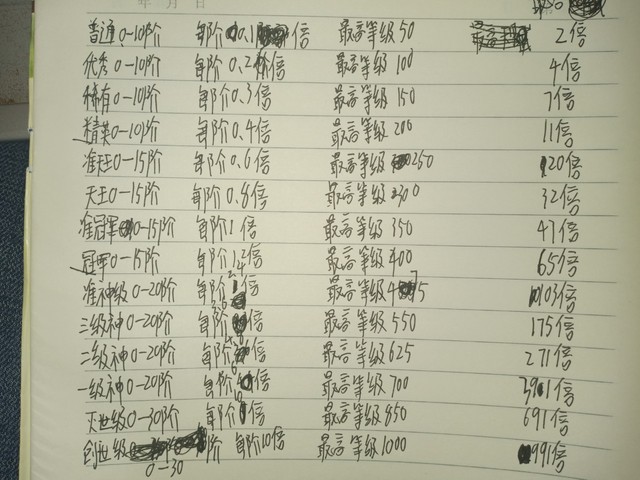 年 月 日
普通0-10阶 每阶0.1倍 最高等级50 2倍
优秀0-10阶 每阶0.2倍 最高等级100 4倍
稀有0-10阶 每阶0.3倍 最高等级150 7倍
精英0-10阶 每阶0.4倍 最高等级200 11倍
准天王0-15阶 每阶0.6倍 最高等级250 20倍
天王0-15阶 每阶0.8倍 最高等级300 32倍
准冠军0-15阶 每阶1倍 最高等级350 47倍
冠军0-15阶 每阶1.2倍 最高等级400 65倍
准神级0-20阶 每阶倍 最高等级475 103倍
三级神0-20阶 每阶倍 最高等级550 175倍
二级神0-20阶 每阶倍 最高等级625 271倍
一级神0-20阶 每阶倍 最高等级700 391倍
灭世级0-30阶 每阶倍 最高等级850 691倍
创世级阶 每阶10倍 最高等级1000 991倍
0-30